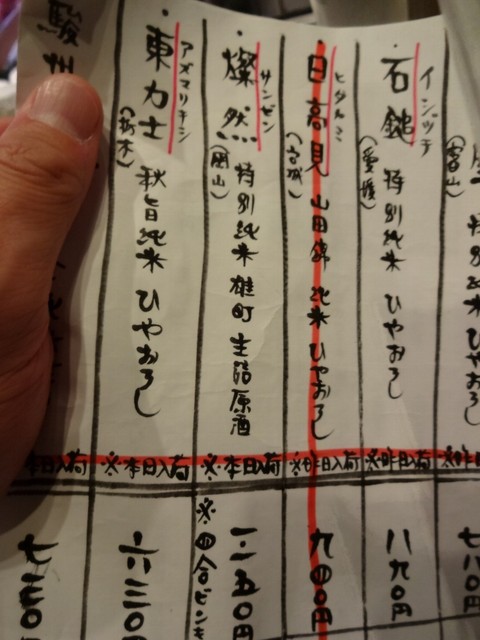 石鎚
イシヅチ
(愛媛)
特別純米 ひやおろし
※昨日入荷
八九〇円
日高見
ヒタカミ
(宮城)
山田錦 純米 ひやおろし
※昨日入荷
九四〇円
燦然
サンゼン
(岡山)
特別純米 雄町 生詰原酒
※本日入荷
一一五〇円
※四合ビン
東力士
アズマリキシ
(栃木)
秋旨純米 ひやおろし
※本日入荷
六三〇円
駿州
本日入荷